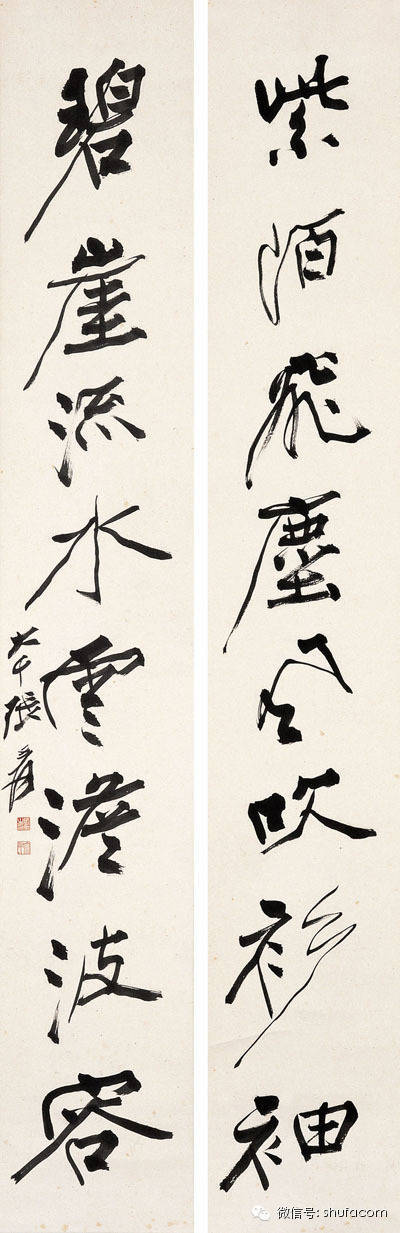 紫陌飛塵風吹衫袖
碧崖流水雲澹波容
大千張爰
微信号: shufacom